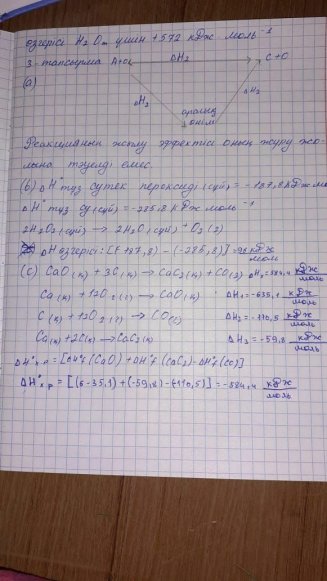 өзгерісі H₂O₍ₘ₎ үшін +572 кДж·моль⁻¹
3-тапсырма A+B ΔH₂ C+D
(a)
ΔH₂ ΔH₃
аралық
өнім
Реакцияның жылу эффектісі оның жүру жо-
лына тәуелді емес.
(b) ΔH° түз сутек пероксиді (сұй) = -187,8 кДж мо
ΔH° түз су(сұй) = -285,8 кДж моль⁻¹
2H₂O₂(сұй) → 2H₂O(сұй) + O₂(г)
ΔH өзгерісі: [(+187,8) - (-285,8)] = 98 кДж/моль
(c) CaO(қ) + 3C(қ) → CaC₂(қ) + CO(г) ΔHₓ = 584,4 кДж/моль
Ca(қ) + 1/2O₂(г) → CaO(қ) ΔH₁ = -635,1 кДж/моль
C(қ) + 1/2O₂(г) → CO(г) ΔH₂ = -110,5 кДж/моль
Ca(қ) + 2C(қ) → CaC₂(қ) ΔH₃ = -59,8 кДж/моль
ΔH°х.р = [ΔH°f(CaO) + ΔH°f(CaC₂) - ΔH°f(CO)]
ΔH°х.р = [(6-35,1) + (-59,8) - (-110,5)] = -584,4 кДж/моль